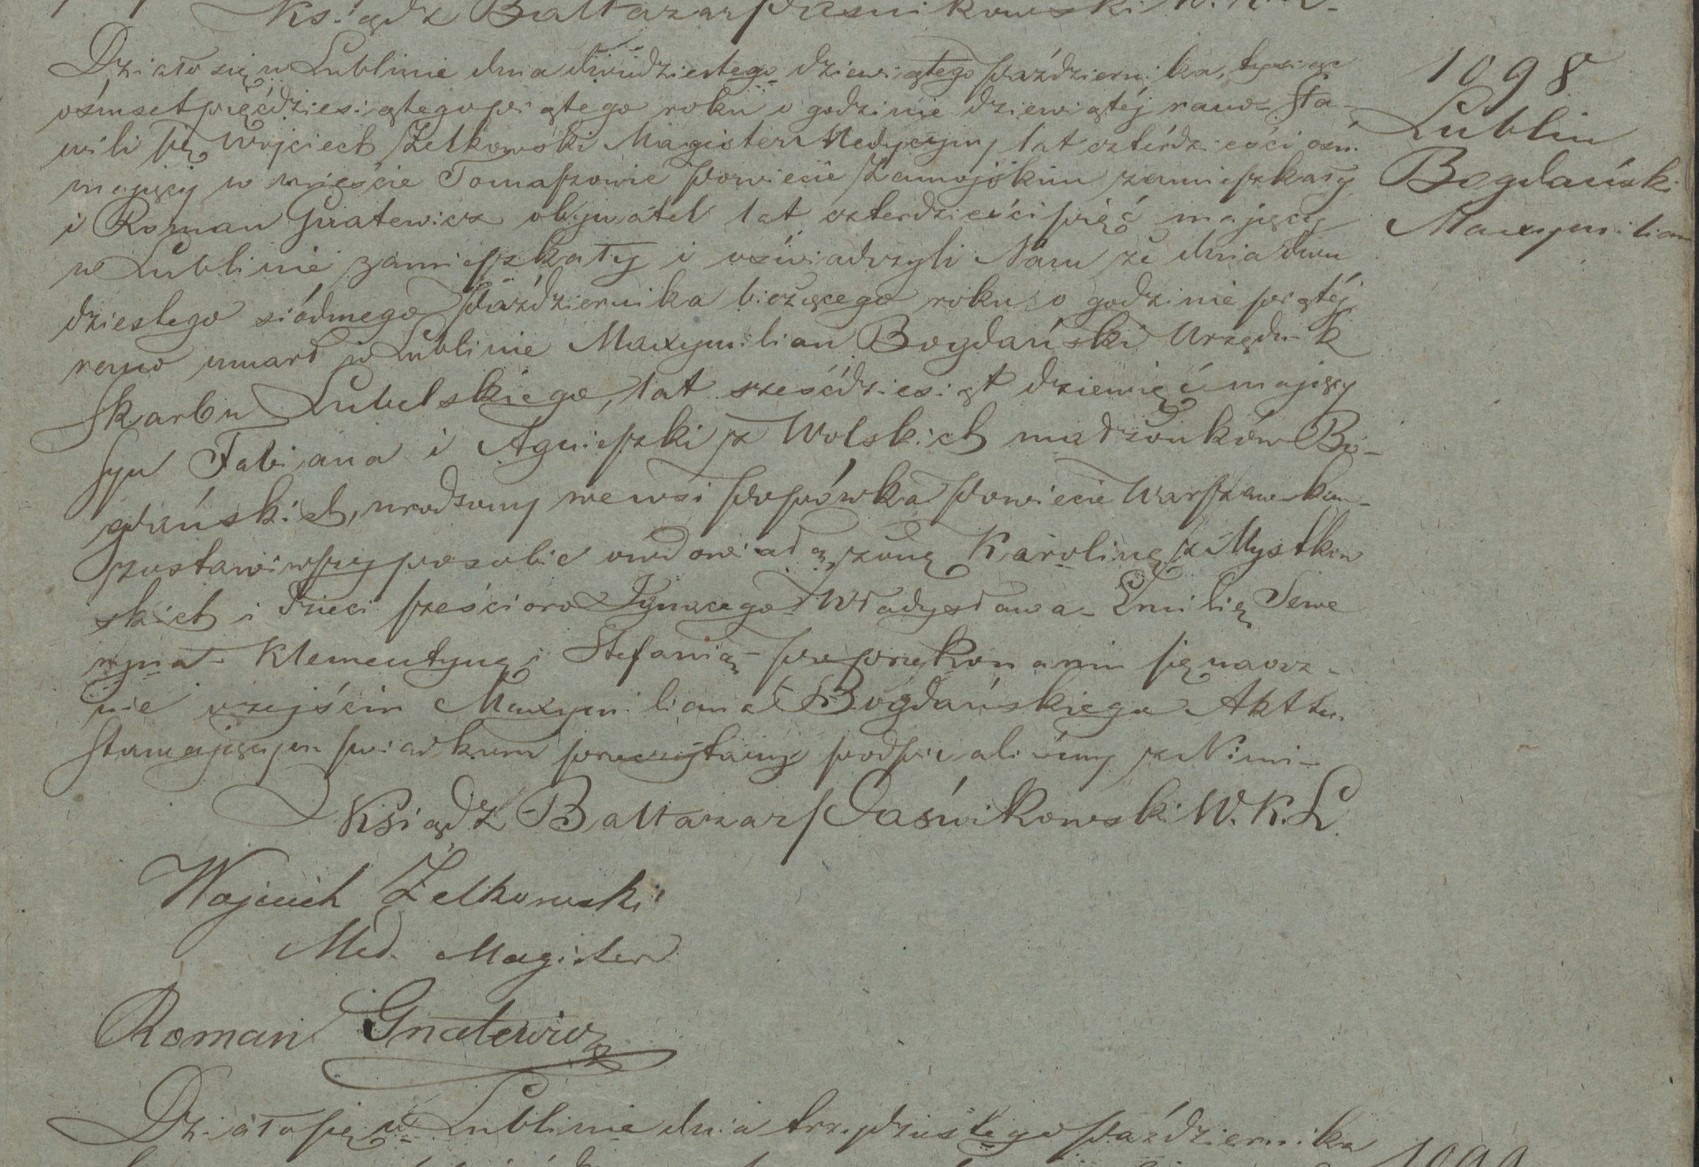 Ksiądz Baltazar Jaśnikowski W.K.L.
Działo się w Lublinie dnia dwudziestego dziewiątego Października, tysiąc
ośmset pięćdziesiątego piątego roku o godzinie dziewiątéj rano Sta-
wili się Wojciech Żelkowski Magister Medycyny lat czterdzieści ośm
mający w mieście Tomaszowie Powiecie Zamojskim zamieszkały
i Roman Gnatewicz obywatel lat czterdzieści pięć mający
w Lublinie zamieszkały i oświadczyli Nam że dnia dwu
dziestego siódmego Października bieżącego roku o godzinie piątéj
rano umarł w Lublinie Maxymilian Bogdański Urzędnik
Skarbu Lubelskiego, lat sześćdziesiąt dziewięć mający
syn Fabiana i Agnieszki z Wolskich małżonków Bo-
gdańskich, urodzony we wsi Popówka Powiecie Warszawskim
zostawiwszy po sobie owdowiałą żonę Karolinę z Mystkow
skich i dzieci sześcioro Ignacego Władysława - Emilię Sewe
ryna - Klementynę i Stefanią - po przekonaniu się naocz-
nie o zejściu Maxymiliana Bogdańskiego Akt ten
Stawającym świadkom przeczytany podpisaliśmy z Nimi -
Ksiądz Baltazar Jaśnikowski W.K.L.
Wojciech Żelkowski
Med. Magister
Roman Gnatewicz
Działo się w Lublinie dnia trzydziestego Października
1098
Lublin
Bogdański
Maxymilian
1099